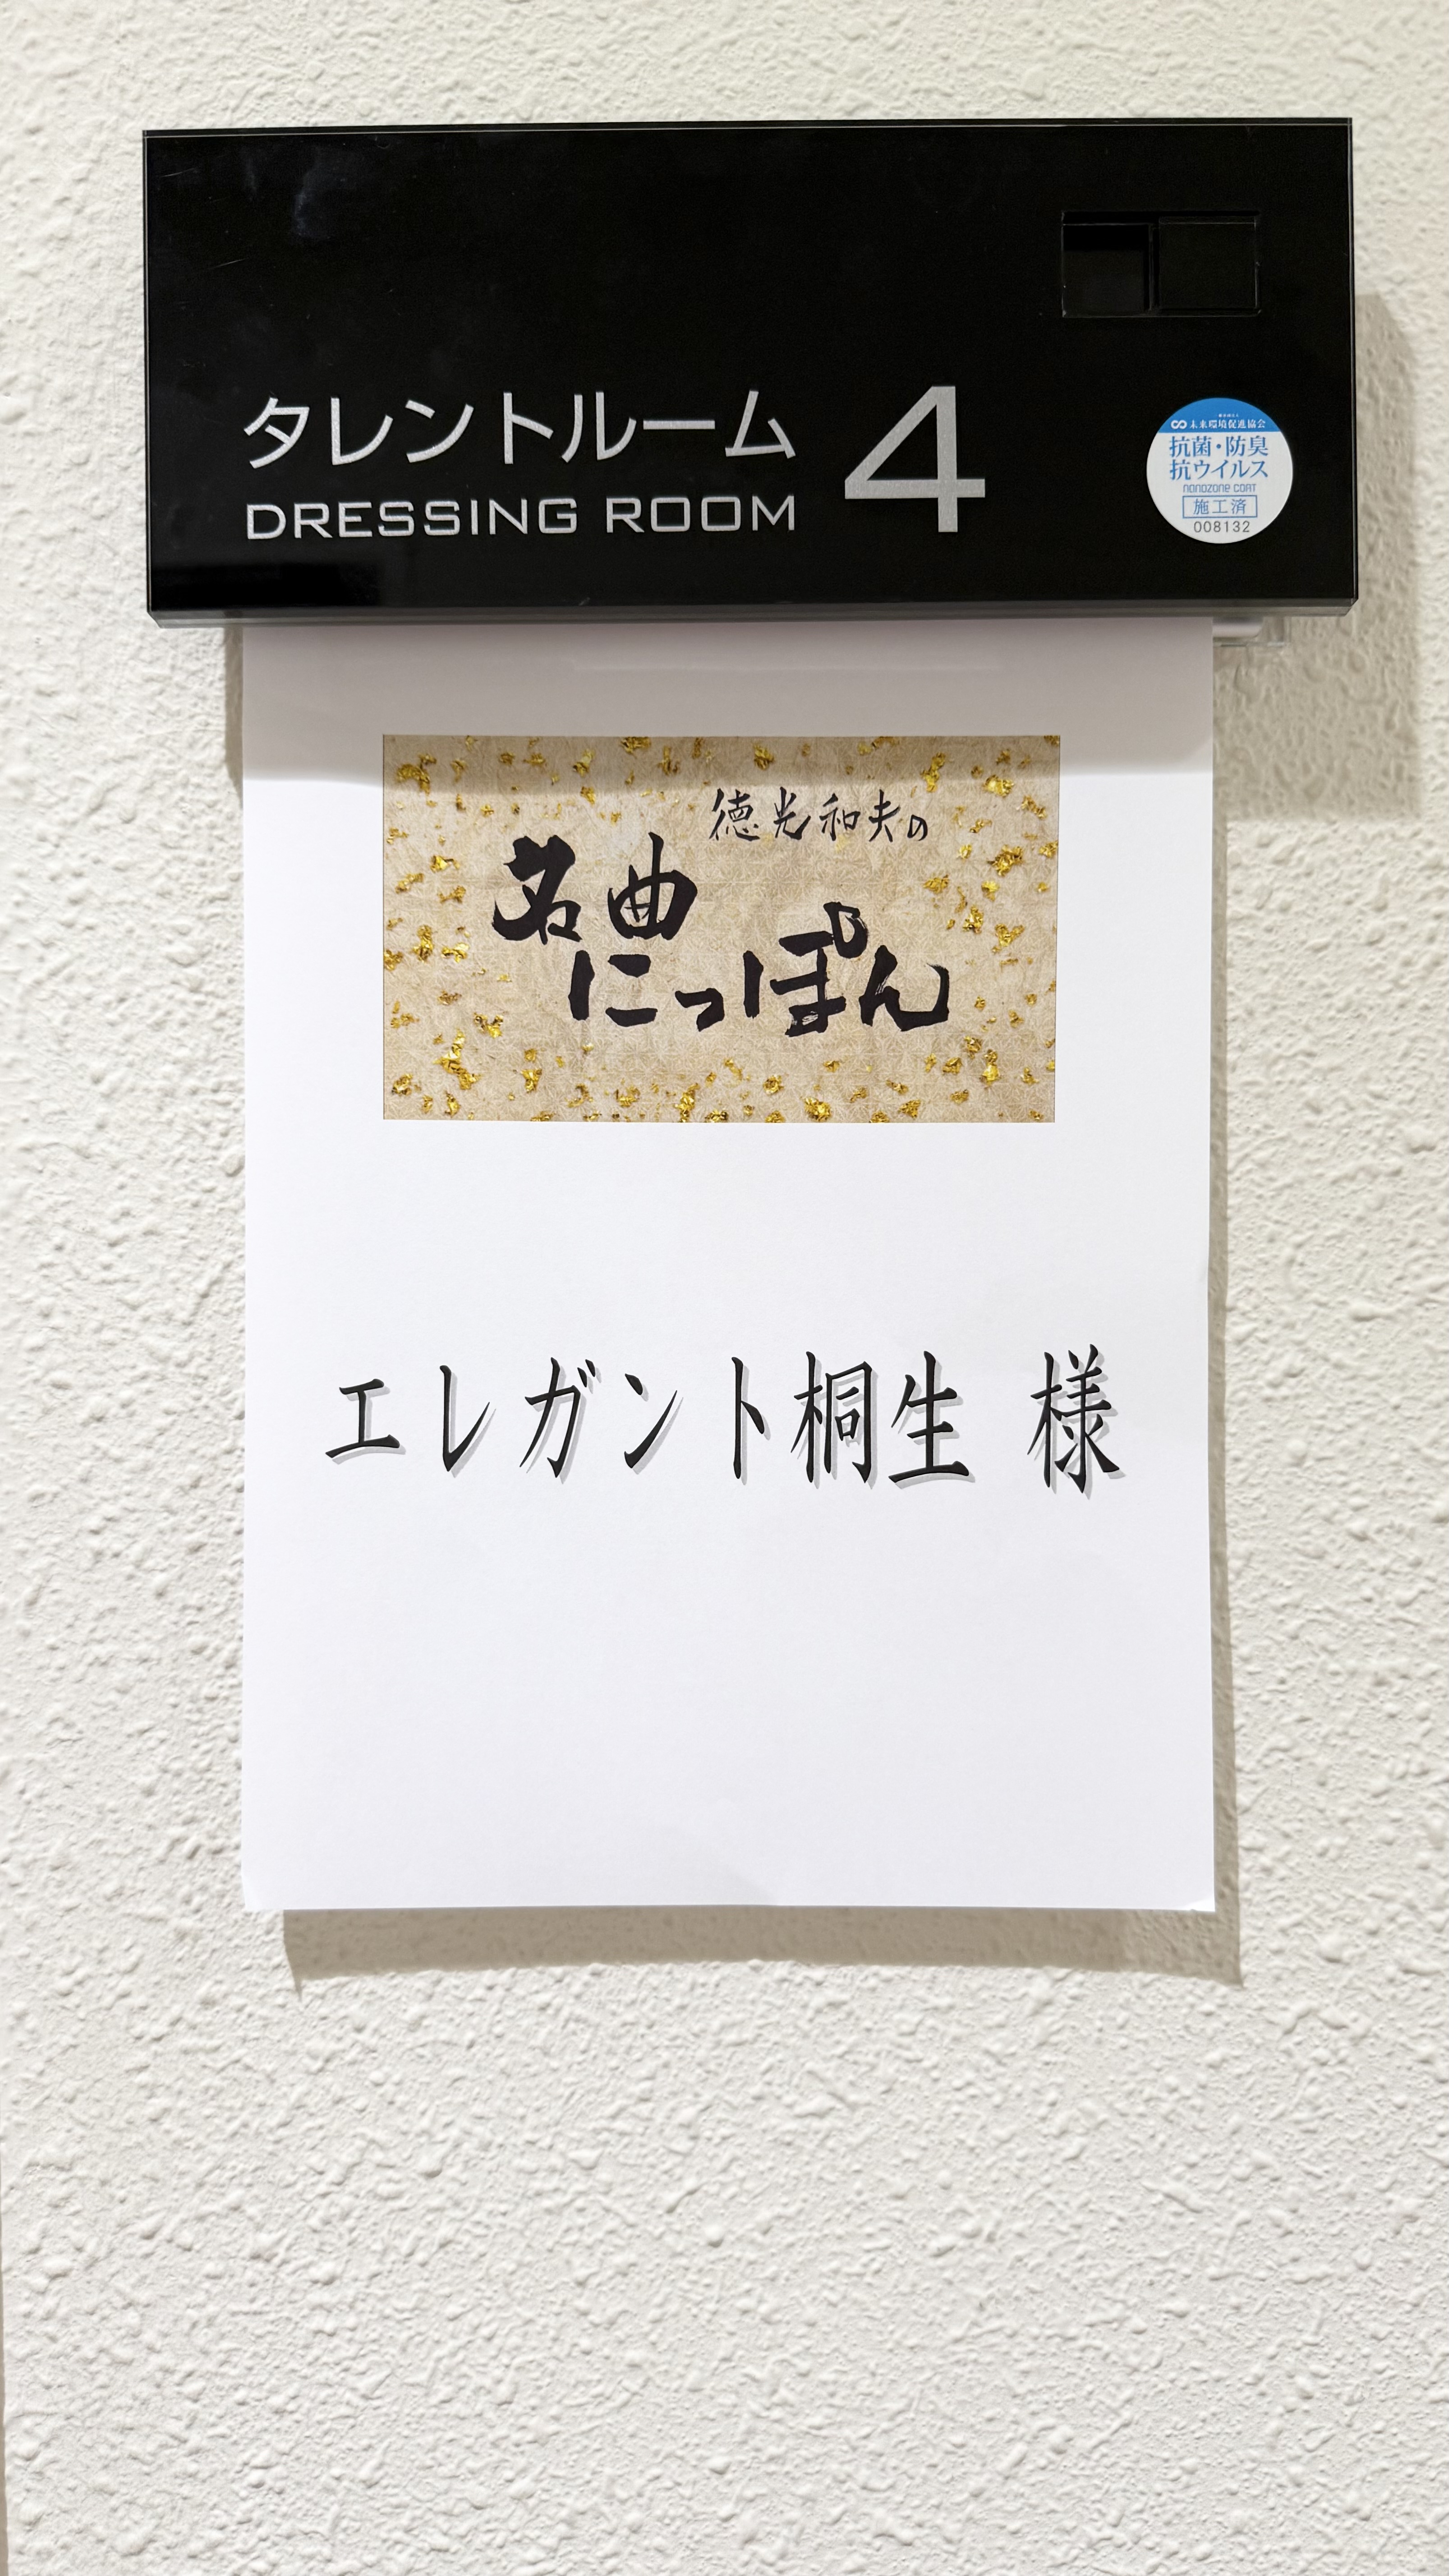 タレントルーム 4
DRESSING ROOM
未来環境促進協会
抗菌・防臭
抗ウイルス
nanozone COAT
施工済
008132
徳光和夫の
名曲
にっぽん
エレガント桐生 様